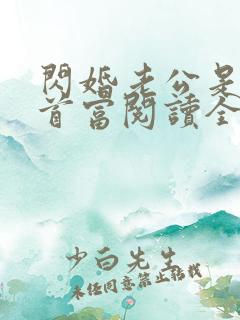 閃婚老公是
首富閱讀全
少白先生
未經同意禁止轉載